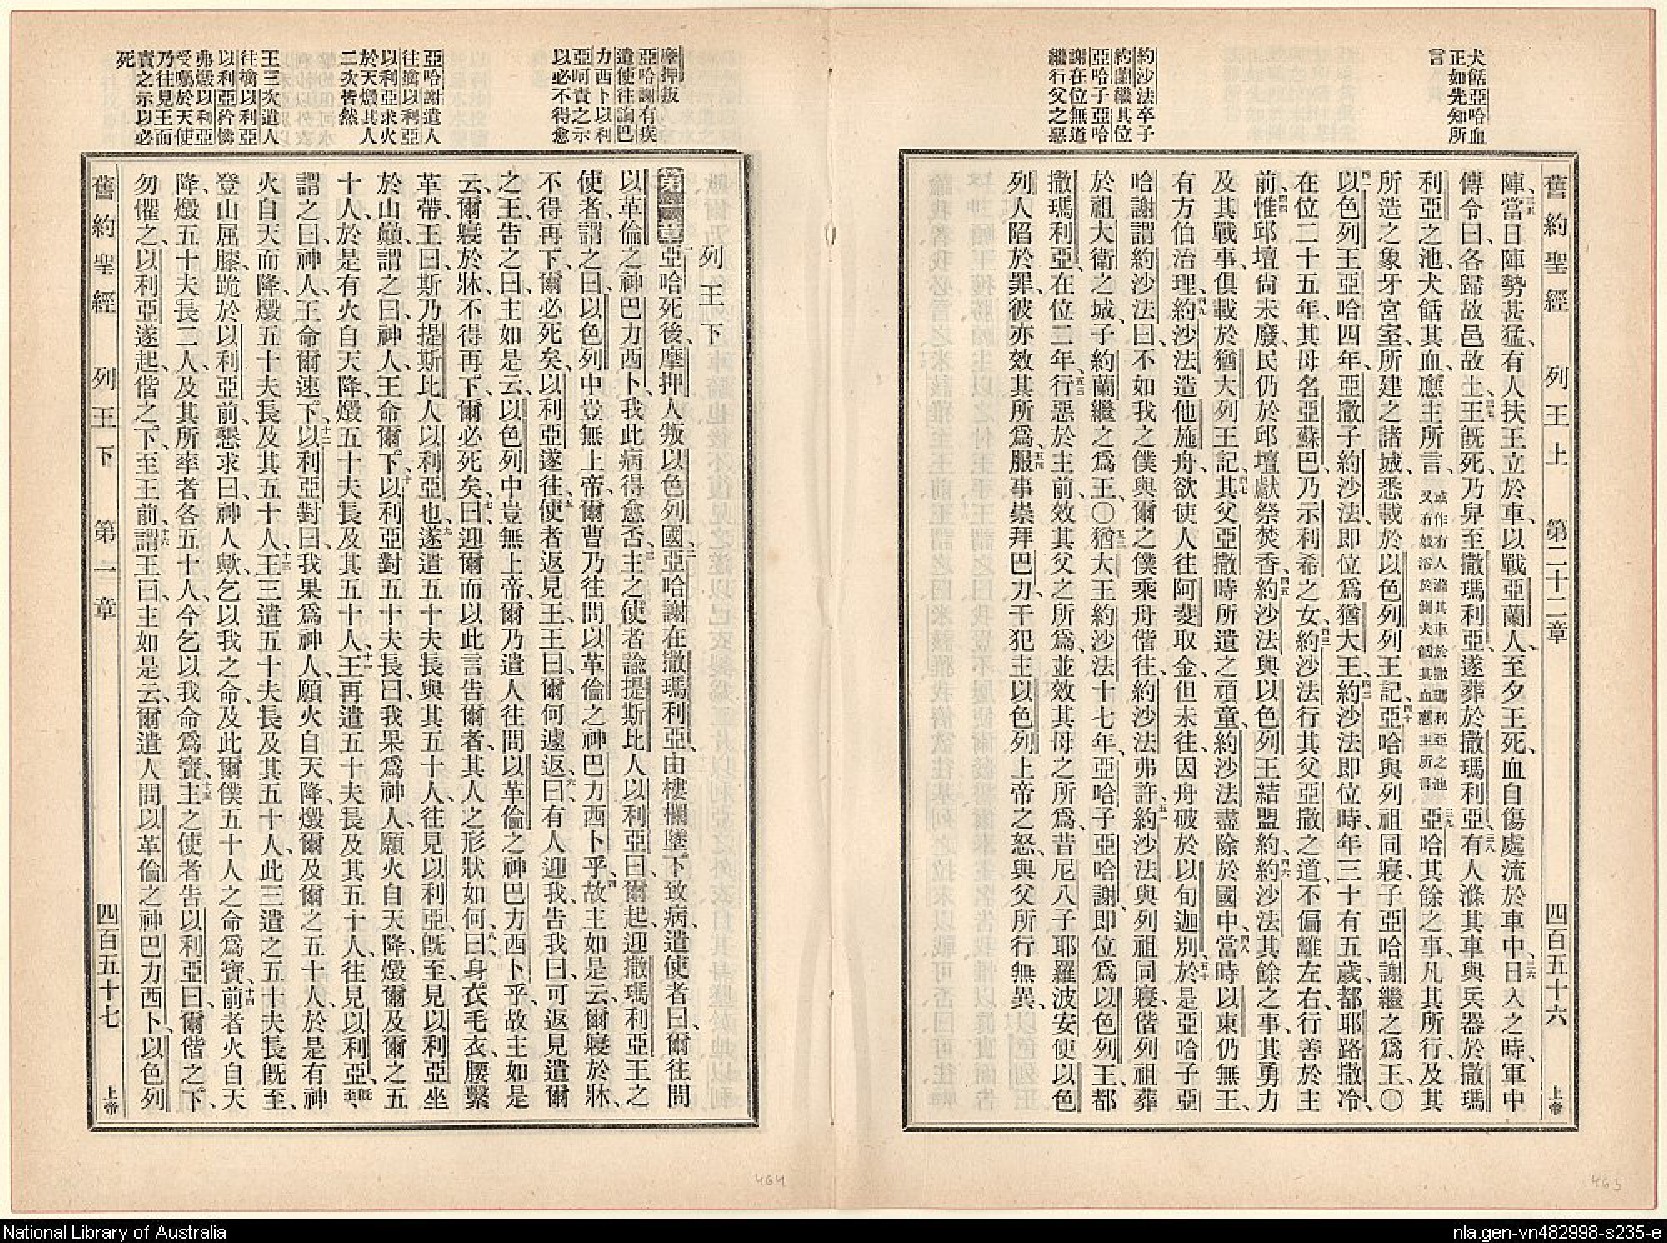 犬餂亞哈血
正如先知所
言
約沙法卒子
約蘭繼其位
亞哈子亞哈
謝在位無道
繼行父之惡
舊約聖經 列王上 第二十二章 四百五十六 上帝
陣、當日陣勢甚猛、有人扶王立於車、以戰亞蘭人、至夕王死、血自傷處流於車中、日入之時、軍中
傳令曰、各歸故邑故土、王旣死、乃舁至撒瑪利亞、遂葬於撒瑪利亞、有人滌其車與兵器於撒瑪
利亞之池、犬餂其血、應主所言、亞哈其餘之事、凡其所行、及其
所造之象牙宮室、所建之諸城、悉載於以色列列王記、亞哈與列祖同寢、子亞哈謝繼之爲王、〇
以色列王亞哈四年、亞撒子約沙法卽位爲猶大王、約沙法卽位時、年三十有五歲、都耶路撒冷、
在位二十五年、其母名亞蘇巴、乃示利希之女、約沙法行其父亞撒之道、不偏離左右、行善於主
前、惟邱壇尙未廢、民仍於邱壇獻祭焚香、約沙法與以色列王結盟、約沙法其餘之事、其勇力
及其戰事、俱載於猶大列王記、其父亞撒時所遺之頑童、約沙法盡除於國中、當時以東仍無王、
有方伯治理、約沙法造他施舟、欲使人往阿斐取金、但未往、因舟破於以旬迦別、於是亞哈子亞
哈謝謂約沙法曰、不如我之僕與爾之僕乘舟偕往、約沙法弗許、約沙法與列祖同寢、偕列祖葬
於祖大衛之城、子約蘭繼之爲王、〇猶大王約沙法十七年、亞哈子亞哈謝、卽位爲以色列王、都
撒瑪利亞、在位二年、行惡於主前、效其父之所爲、並效其母之所爲、昔尼八子耶羅波安使以色
列人陷於罪、彼亦效其所爲、服事崇拜巴力、干犯主以色列上帝之怒、與父所行無異、
摩押叛
亞哈謝有疾
遣使往詢巴
力西卜以利
亞呵責之示
以必不得愈
亞哈謝遣人
往擒以利亞
以利亞求火
於天燬其人
二次皆然
王三次遣人
往擒以利亞
以利亞矜憐
弗燬以利亞
受囑於天使
乃往見王而
責之示以必
死
列王下
第一章亞哈死後、摩押人叛以色列國、亞哈謝在撒瑪利亞、由樓欄墜下致病、遣使者曰、爾往問
以革倫之神巴力西卜、我此病得愈否、主之使者諭提斯比人以利亞曰、爾起、迎撒瑪利亞王之
使者、謂之曰、以色列中豈無上帝、爾曹乃往問以革倫之神巴力西卜乎、故主如是云、爾寢於牀、
不得再下、爾必死矣、以利亞遂往、使者返見王、王曰、爾何遽返、曰、有人迎我、告我曰、可返見遣爾
之王、告之曰、主如是云、以色列中豈無上帝、爾乃遣人往問以革倫之神巴力西卜乎、故主如是
云、爾寢於牀、不得再下、爾必死矣、曰、迎爾而以此言告爾者、其人之形狀如何、曰、身衣毛衣、腰繫
革帶、王曰、斯乃提斯比人以利亞也、遂遣五十夫長與其五十人、往見以利亞、旣至、見以利亞坐
於山巔、謂之曰、神人、王命爾下、以利亞對五十夫長曰、我果爲神人、願火自天降、燬爾及爾之五
十人、於是有火自天降、燬五十夫長及其五十人、王再遣五十夫長及其五十人、往見以利亞、旣至、
謂之曰、神人、王命爾速下、以利亞對曰、我果爲神人、願火自天降、燬爾及爾之五十人、於是有神
火自天而降、燬五十夫長及其五十人、王三遣五十夫長及其五十人、此三遣之五十夫長旣至、
登山屈膝、跪於以利亞前、懇求曰、神人歟、乞以我之命、及此爾僕五十人之命爲寶、前者火自天
降、燬五十夫長二人、及其所率者各五十人、今乞以我命爲寶、主之使者告以利亞曰、爾偕之下、
勿懼之、以利亞遂起、偕之下、至王前、謂王曰、主如是云、爾遣人問以革倫之神巴力西卜、以色列
舊約聖經 列王下 第一章 四百五十七 上帝
464
463
National Library of Australia
nla.gen-vn482998-s235-e